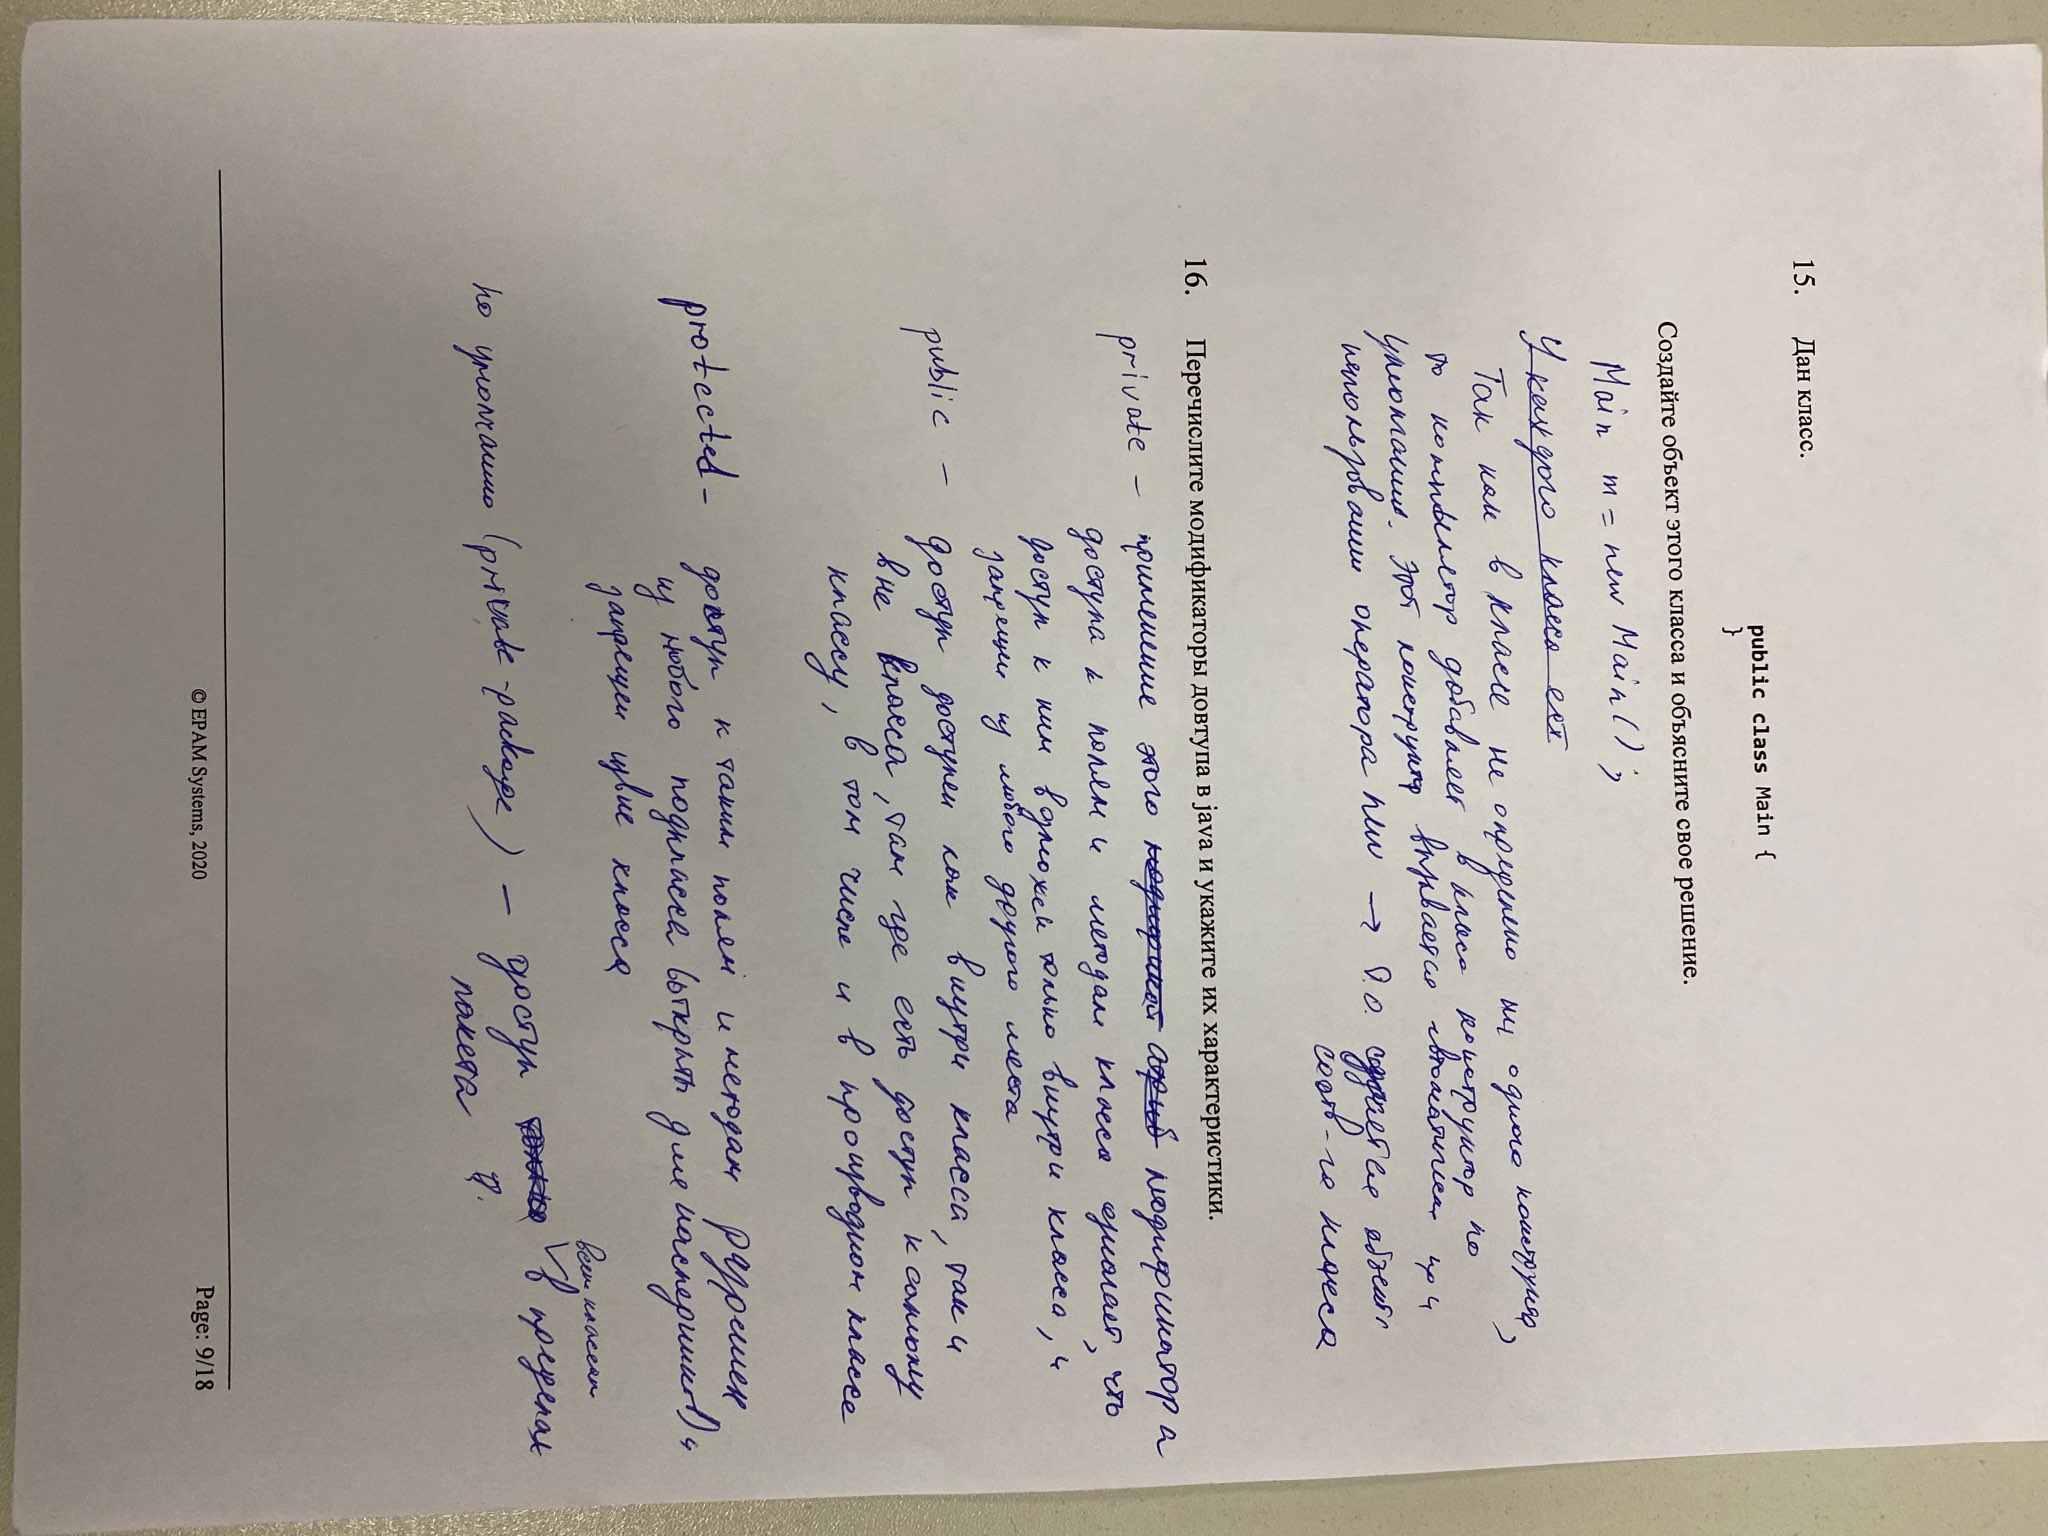 15. Дан класс.
public class Main {
}
Создайте объект этого класса и объясните свое решение.
Main m = new Main();
У каждого класса ест
Так как в классе не определено ни одного конструктор,
то компилятор добавляет в класс конструктор по
умолчанию. Этот конструктор вызывается автоматически при
использовании оператора new → т.о. создается объект
соотв-го класса
16. Перечислите модификаторы довтупа в java и укажите их характеристики.
private - применение этого модификатора
доступа к полям и методам класса означает, что
доступ к ним возможен только внутри класса, и
запрещен из любого другого места
public - доступ доступен как внутри класса, так и
вне класса, там где есть доступ к самому
классу, в том числе и в производном классе
protected - доступ к таким полям и методам разрешен
из любого подкласса (открыт для наследников) и
запрещен извне класса
по умолчанию (private-package) - доступ всем классам в пределах
пакета
© EPAM Systems, 2020
Page: 9/18